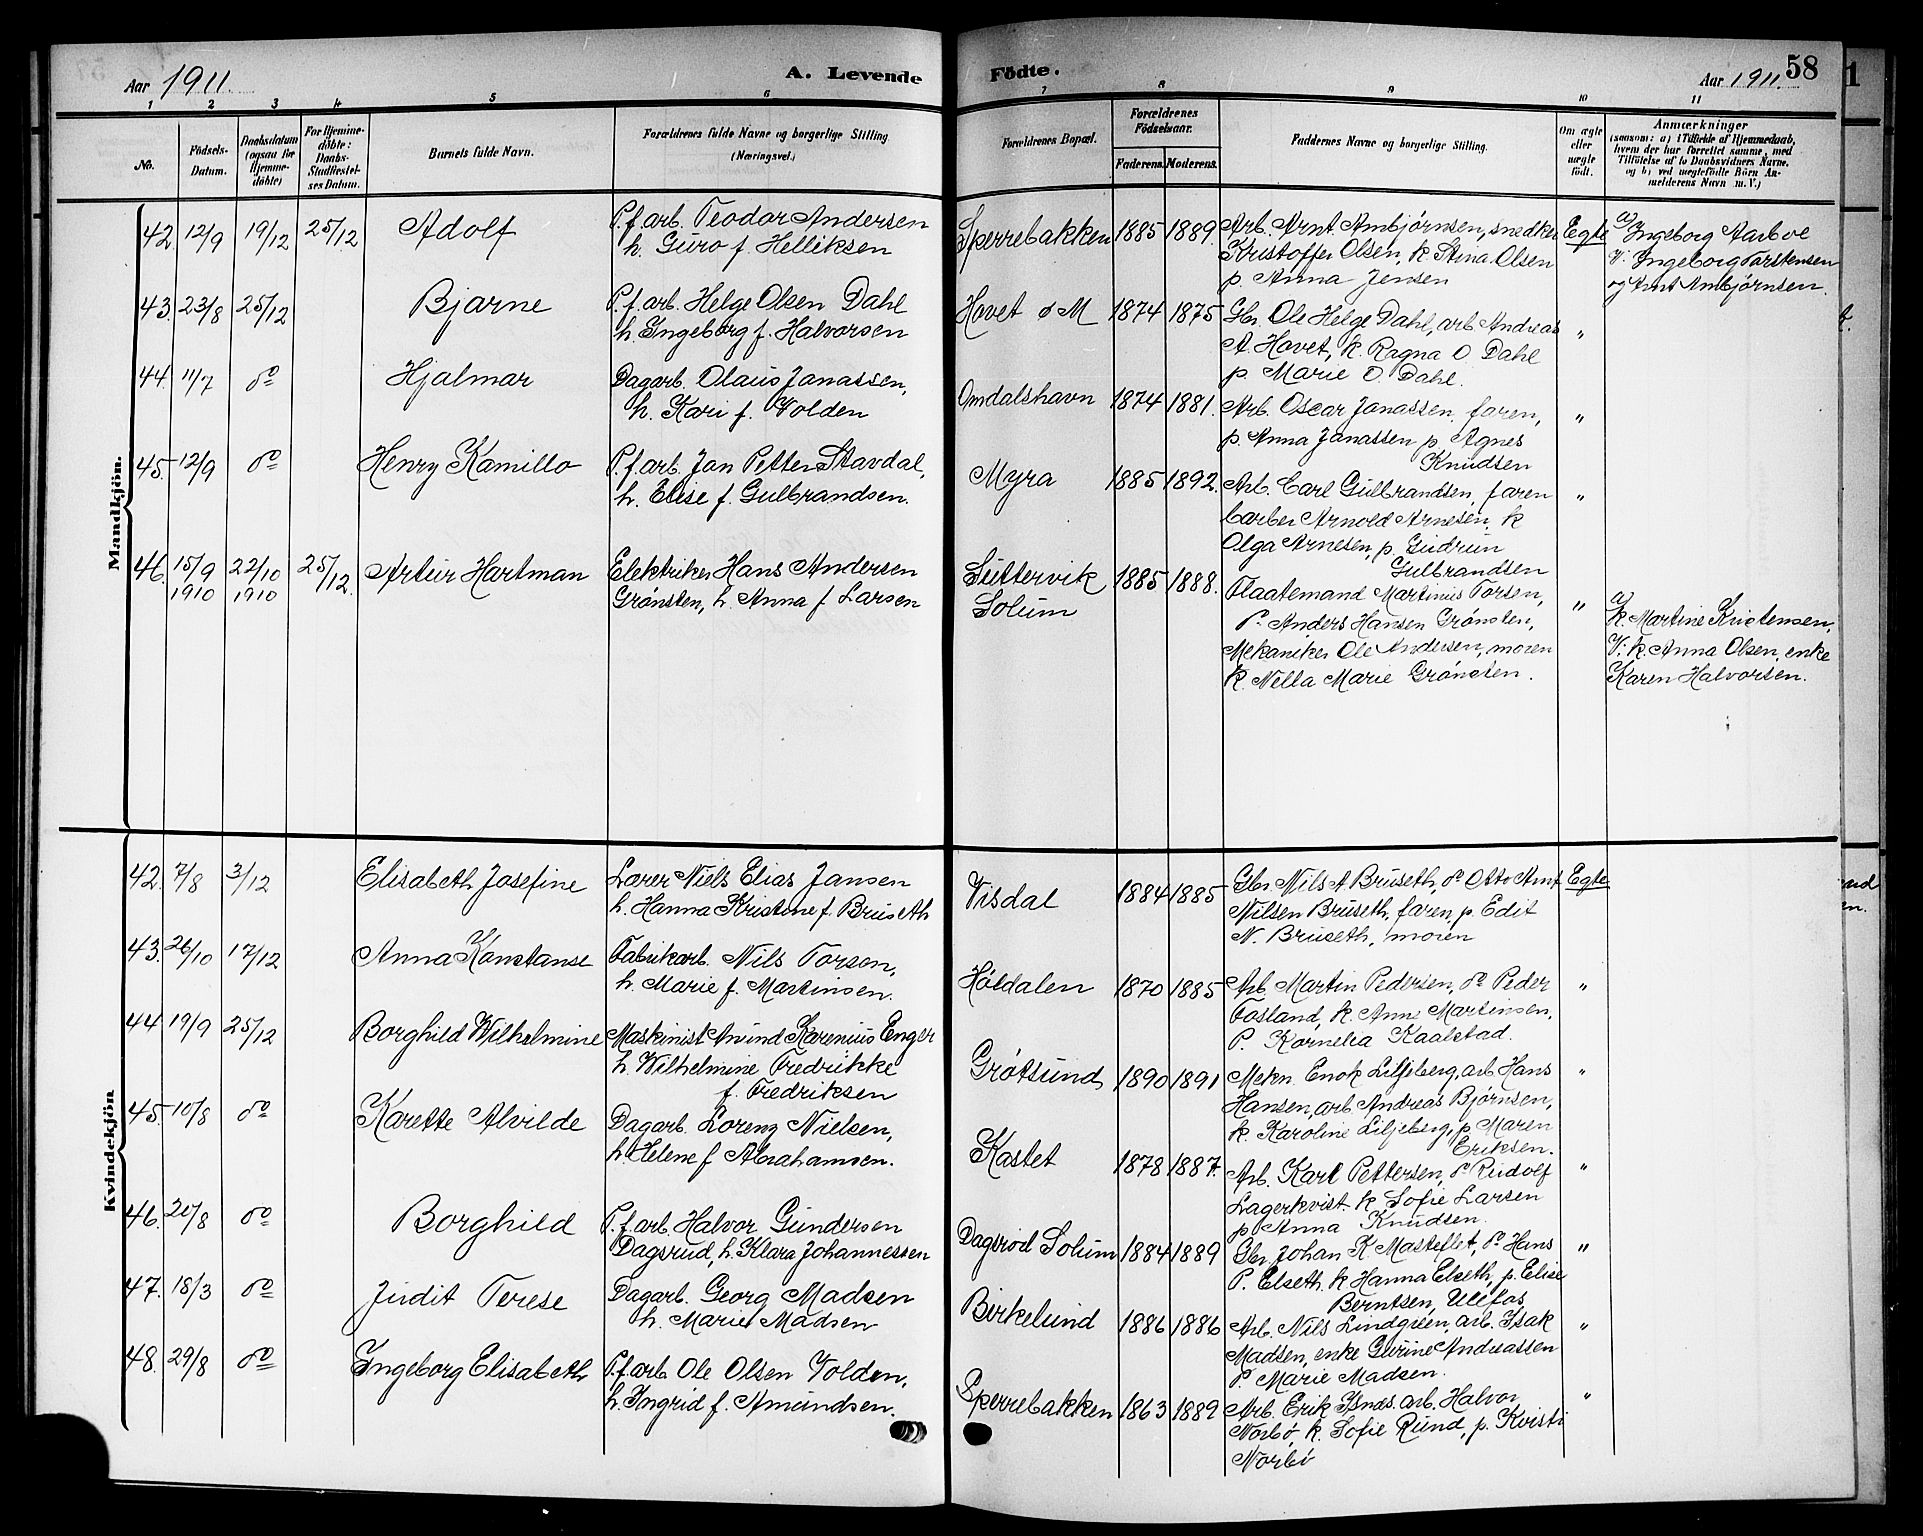 Aar 1911.
A. Levende
1 2 3 4 5 6
No.
Födsels-
Datum.
Daabsdatum
(ogsaa for
Hjemme-
döbte)
For Hjemme-
döbte:
Daabs-
Stadfæstel-
ses Datum.
Barnets fulde Navn.
Forældrenes fulde Navne og borgerlige Stilling
(Næringsvei.)
Mandkjön.
42. 12/9 19/12 25/12 Adolf
P.f.arb. Teodor Andersen
h. Guro f. Helliksen
43. 23/8 25/12 Bjarne
P.f.arb. Helge Olsen Dahl
h. Ingeborg f. Halvorsen
44. 11/7 do Hjalmar
Dagarb. Olaus Janassen,
h. Kari f. Volden
45. 12/9 do Henry Kamillo
P.f.arb. Jan Petter Stavdal,
h. Elise f. Gulbrandsen.
46. 15/9 1910 22/10 1910 25/12. Artur Hartman
Elektriker Hans Andersen
Grønsten, h. Anna f Larsen
Kvindekjön
42. 7/8 3/12 Elisabeth Josefine
Lærer Niels Elias Jansen
h. Hanna Kristine f. Bruseth
43. 26/10 17/12 Anna Konstanse
Fabrikarb. Nils Torsen,
h. Marie f. Martinsen.
44 19/9 25/12 Borghild Wilhelmine
Maskinist Anund Karenius Enger
h. Wilhelmine Fredrikke
f. Fredriksen
45. 10/8 do Karette Alvilde
Dagarb. Lorenz Nielsen,
h. Helene f Abrahamsen.
46. 20/8 do Borghild
P.f.arb. Halvor Gundersen
Dagsrud, h. Klara Johannessen
47. 18/3 do Judit Terese
Dagarb. Georg Madsen
h. Marie Madsen
48. 29/8 do Ingeborg Elisabeth
P.f.arb. Ole Olsen Volden,
h. Ingrid f. Amundsen.
Födte.
Aar 1911. 58
7 8 9 10 11
Forældrenes Bopæl.
Forældrenes
Födselsaar.
Faderens. Moderens.
Faddernes Navne og borgerlige Stilling.
Om ægte
eller
uægte
födt.
Anmærkninger
(saasom: a) i Tilfælde af Hjemmedaab,
hvem der har forrettet samme, med
Tilföielse af to Daabsvidners Navne,
og b) ved uægtefödte Börn An-
melderens Navn m. V.)
Sperrebakken 1885 1889. Arb. Arnt Ambjørnsen, snedker Egte
Kristoffer Olsen, k Stina Olsen
p. Anna Jensen
a) Ingeborg Aarbve
V: Ingeborg Torstensen
og Arnt Ambjørnsen.
Hovet ø M 1874 1875 Gbr. Ole Helge Dahl, arb Andreas "
A. Hovet, k. Ragna O. Dahl
p. Marie O. Dahl.
Omdalshavn 1874 1881. Arb. Oscar Janassen, faren, "
p. Anna Janassen p. Agnes
Knudsen
Myra 1885 1892. Arb. Carl Gulbrandsen, faren "
barber Arnold Arnesen, k
Olga Arnesen, p. Gudrun
Gulbrandsen
Suttervik
Solum 1885 1888. Flaatemand Martinus Torsen, "
do Anders Hansen Grønsten,
Mekaniker Ole Andersen, moren
k. Nella Marie Grønsten.
a)
k. Martine Kristensen,
V: k. Anna Olsen, enke
Karen Halvorsen.
Visdal 1884 1885 Gbr. Nils A Bruseth, do Otto Arnt Egte
Nilsen Bruseth, faren, p. Edit
N. Bruseth, moren
Høldalen 1870 1885 Arb. Martin Pedersen, do Peder "
Fosland, k. Anne Martinsen,
P. Kornelia Kaalstad.
Grøtsund 1890 1891 Mekn. Enok Liljeberg, arb Hans "
Hansen, arb. Andreas Bjørnsen,
k. Karoline Liljeberg, p Maren
Eriksen.
Kastet 1878 1887. Arb. Karl Pettersen, do Rudolf "
Lagerkvist. k Sofie Larsen
p Anna Knudsen.
Dagsrod Solum 1884 1889 Gbr. Johan K Masteflet, do Hans "
P. Elseth. k Hanna Elseth, p. Elise
Berntsen, Ulefos
Birkelund 1886 1886 Arb. Nils Lindgren, arb. Isak "
Madsen, enke Gurine Andreassen
P. Marie Madsen.
Sperrebakken 1863 1889 Arb. Erik Isnds. arb. Halvor "
Norbø, k. Sofie Rund, p. Kvisti
Norbø